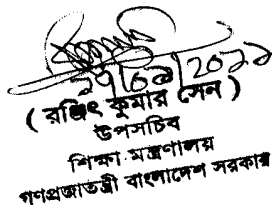 (রঞ্জিৎ কুমার সেন)
উপসচিব
শিক্ষা মন্ত্রণালয়
গণপ্রজাতন্ত্রী বাংলাদেশ সরকার